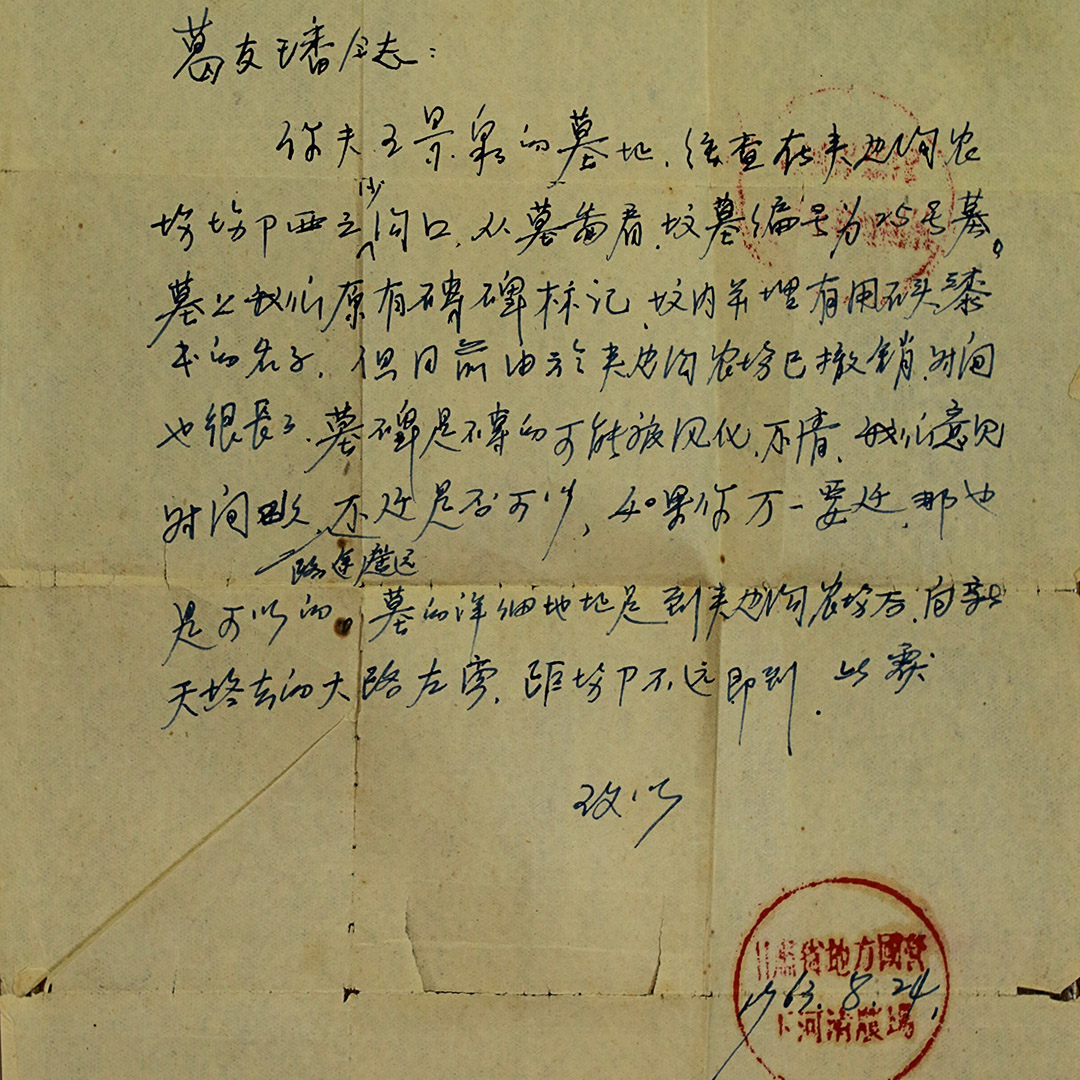 葛友璠仝志：
你夫王景泉的墓地，经查在夹边沟农
埸埸部西之沙沟口，从墓畨看，坟墓编号为25号墓。
墓上我们原有砖碑标记，坟内并埋有用石头漆
书的名子，但目前由于夹边沟农埸已撤销，时间
也很長了，墓碑是砖的可能被风化，不清，我们意见
时间久，路途遥远，不迁是否可以，如果你万一要迁，那也
是可以的。墓的详细地址是到夹边沟农埸后，向
天埸去的大路左旁，距埸部不远即到．此覆
致以
甘肅省地方國營
1963.8.24,
下河清農場